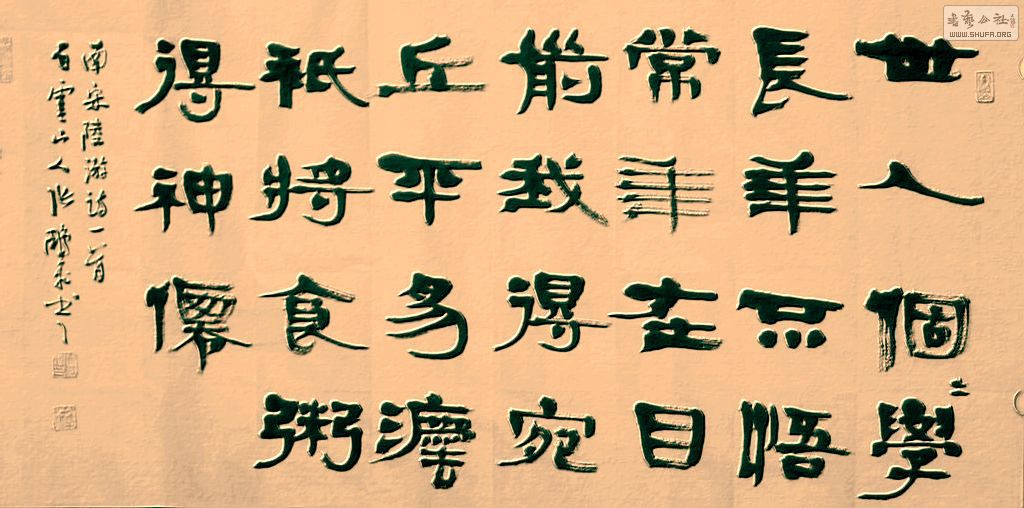 世人個〻學
長年不悟
常年在目
前我得宛
丘平易灋
祗將食粥
得神僊
南宋陸游詩一首
白雲山人張鵬书
書藝公社
WWW.SHUFA.ORG